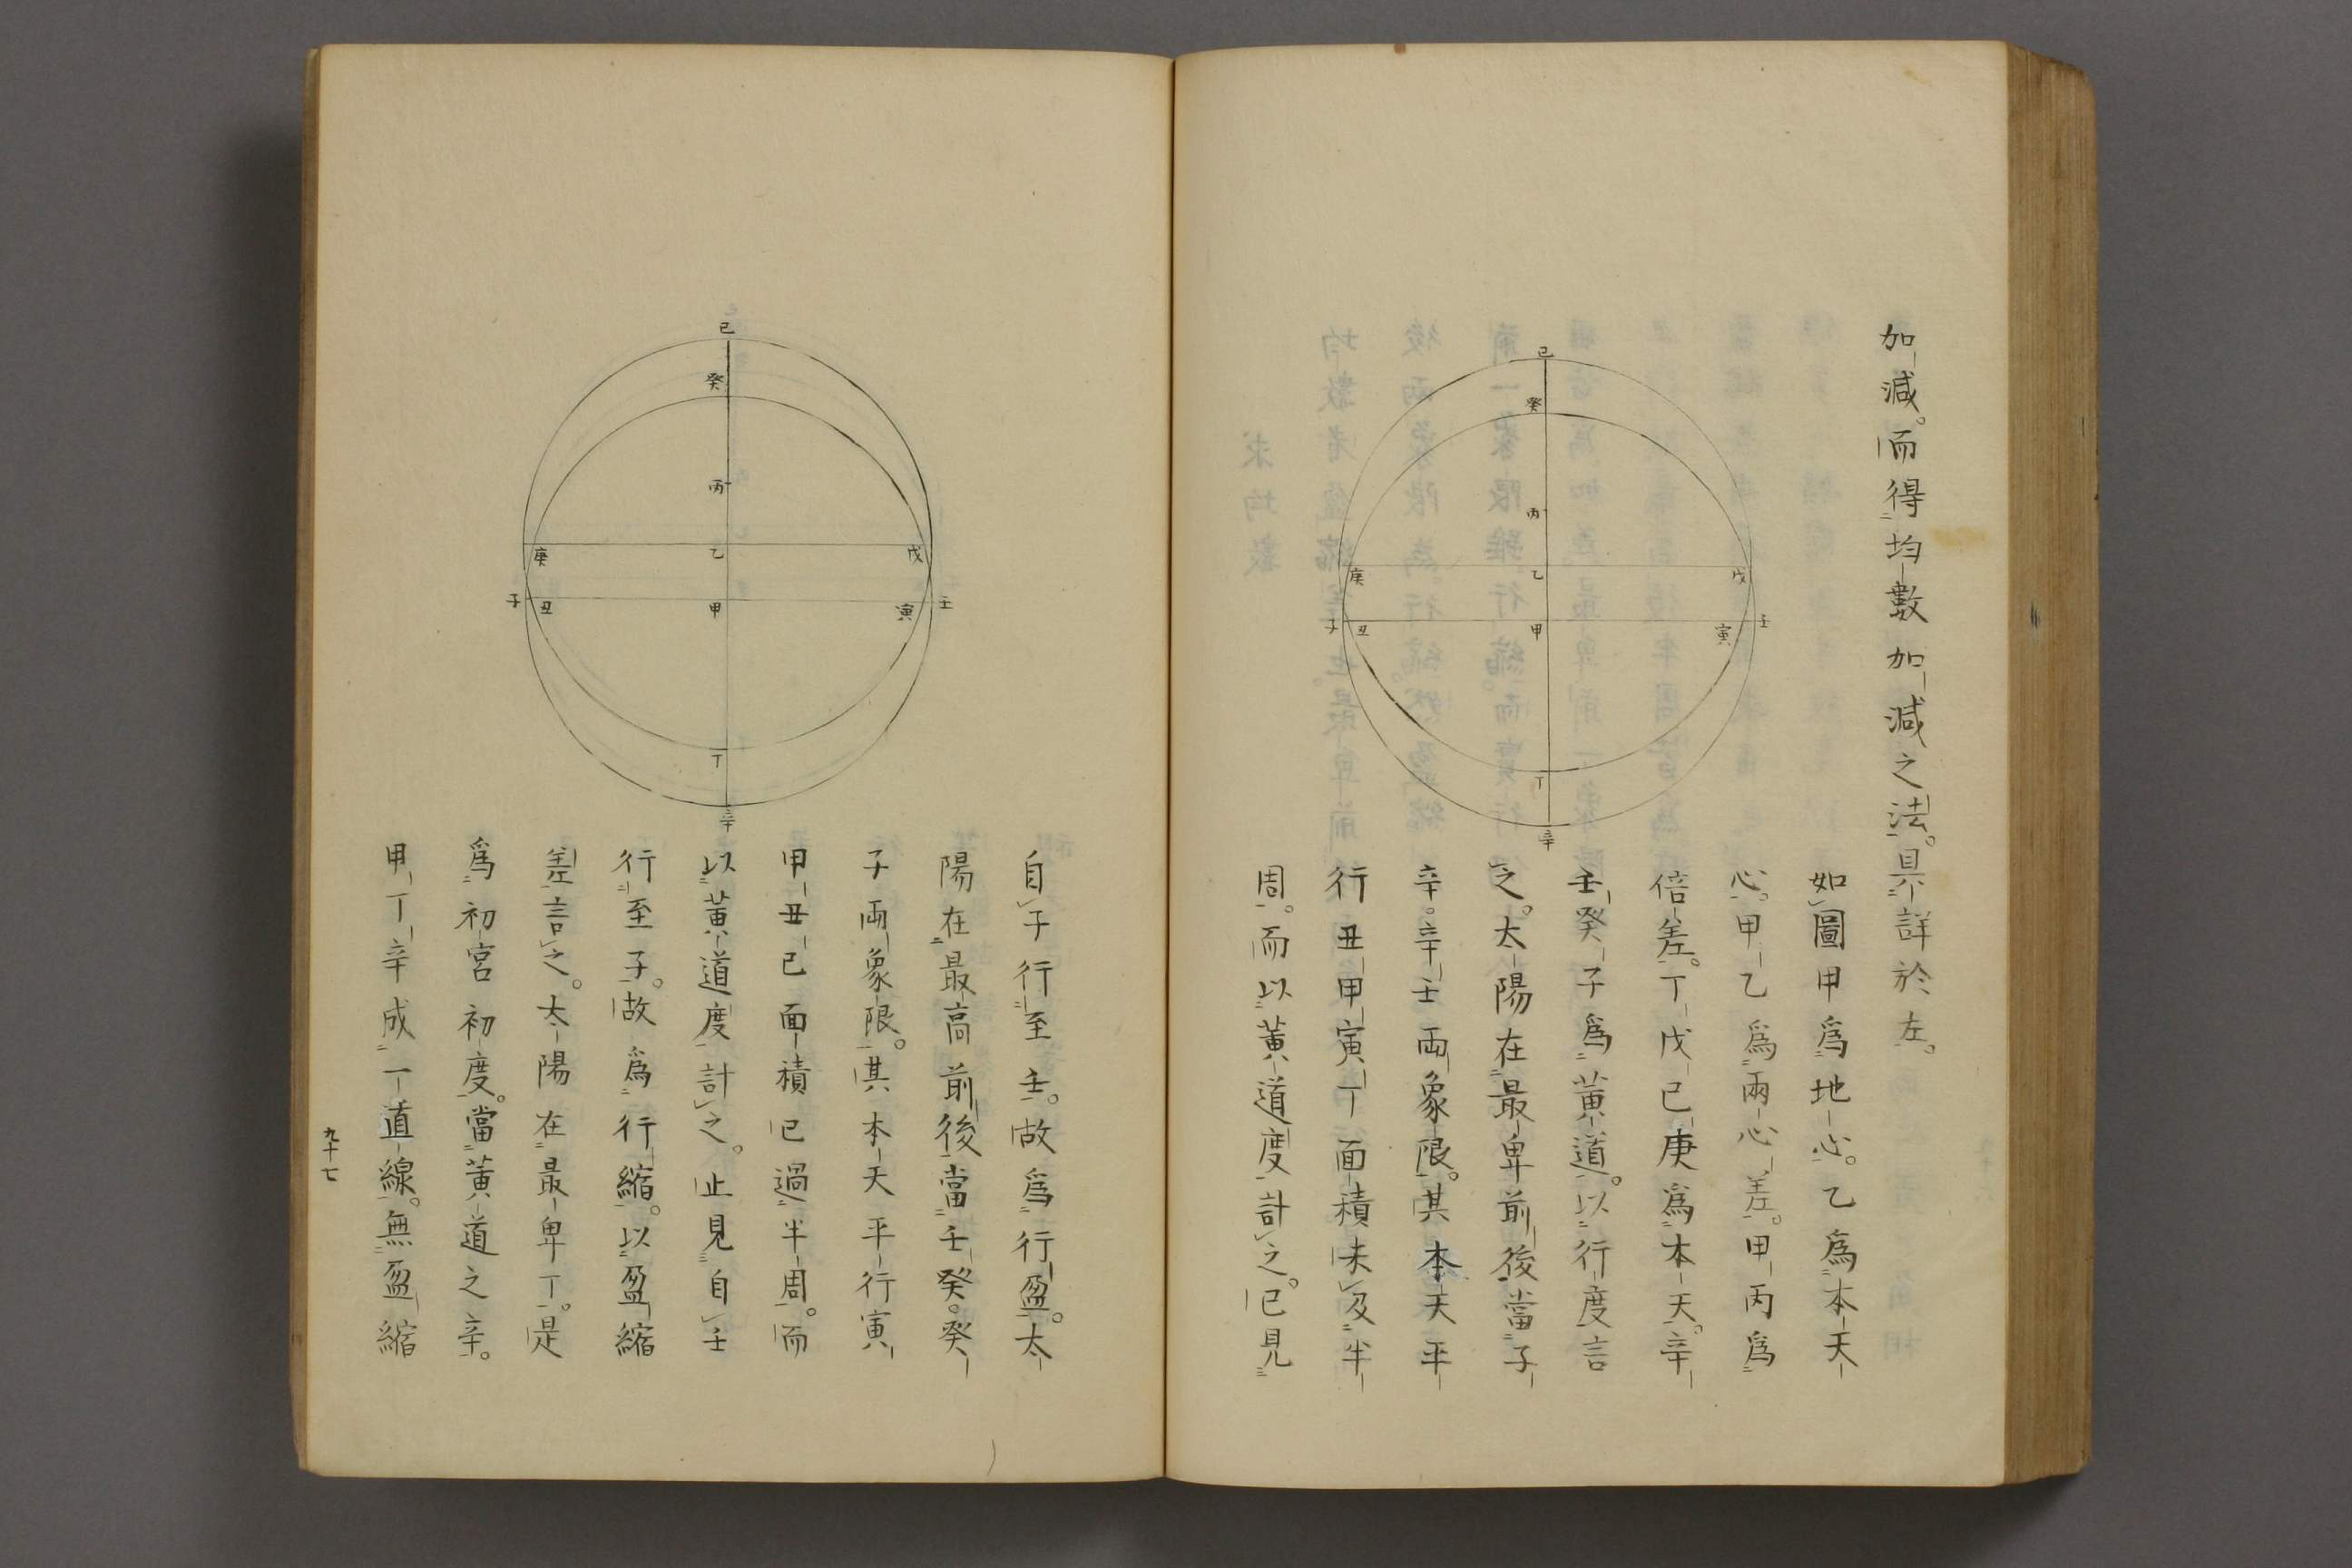 加減。而得均數加減之法。具詳於左。
己
癸
丙
庚
乙
戊
子
丑
甲
寅
壬
丁
辛
如圖甲爲地心。乙爲本天
心。甲乙爲兩心差。甲丙爲
倍差。丁戊己庚爲本天。辛
壬癸子爲黃道。以行度言
之。太陽在最卑前後當子
辛。辛壬兩象限。其本天平
行丑甲寅丁面積未及半
周。而以黃道度計之。已見
己
癸
丙
庚
乙
戊
子
丑
甲
寅
壬
丁
辛
自子行至壬。故爲行盈。太
陽在最高前後當壬癸。癸
子兩象限。其本天平行寅
甲丑己面積已過半周。而
以黃道度計之。止見自壬
行至子。故爲行縮。以盈縮
差言之。太陽在最卑丁。是
爲初宮初度。當黃道之辛。
甲丁辛成一直線。無盈縮
九十七